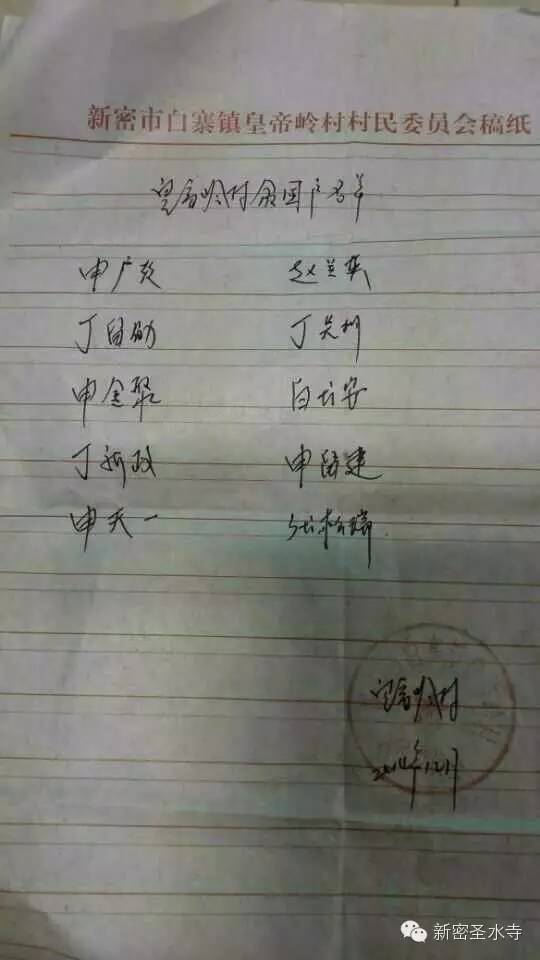 新密市白寨镇皇帝岭村村民委员会稿纸
皇帝岭村贫困户名单
申广欣 赵兰英
丁留勋 丁关州
申金聚 白长安
丁新政 申留建
申天一 张松瑞
皇帝岭村
2014年12月
新密圣水寺